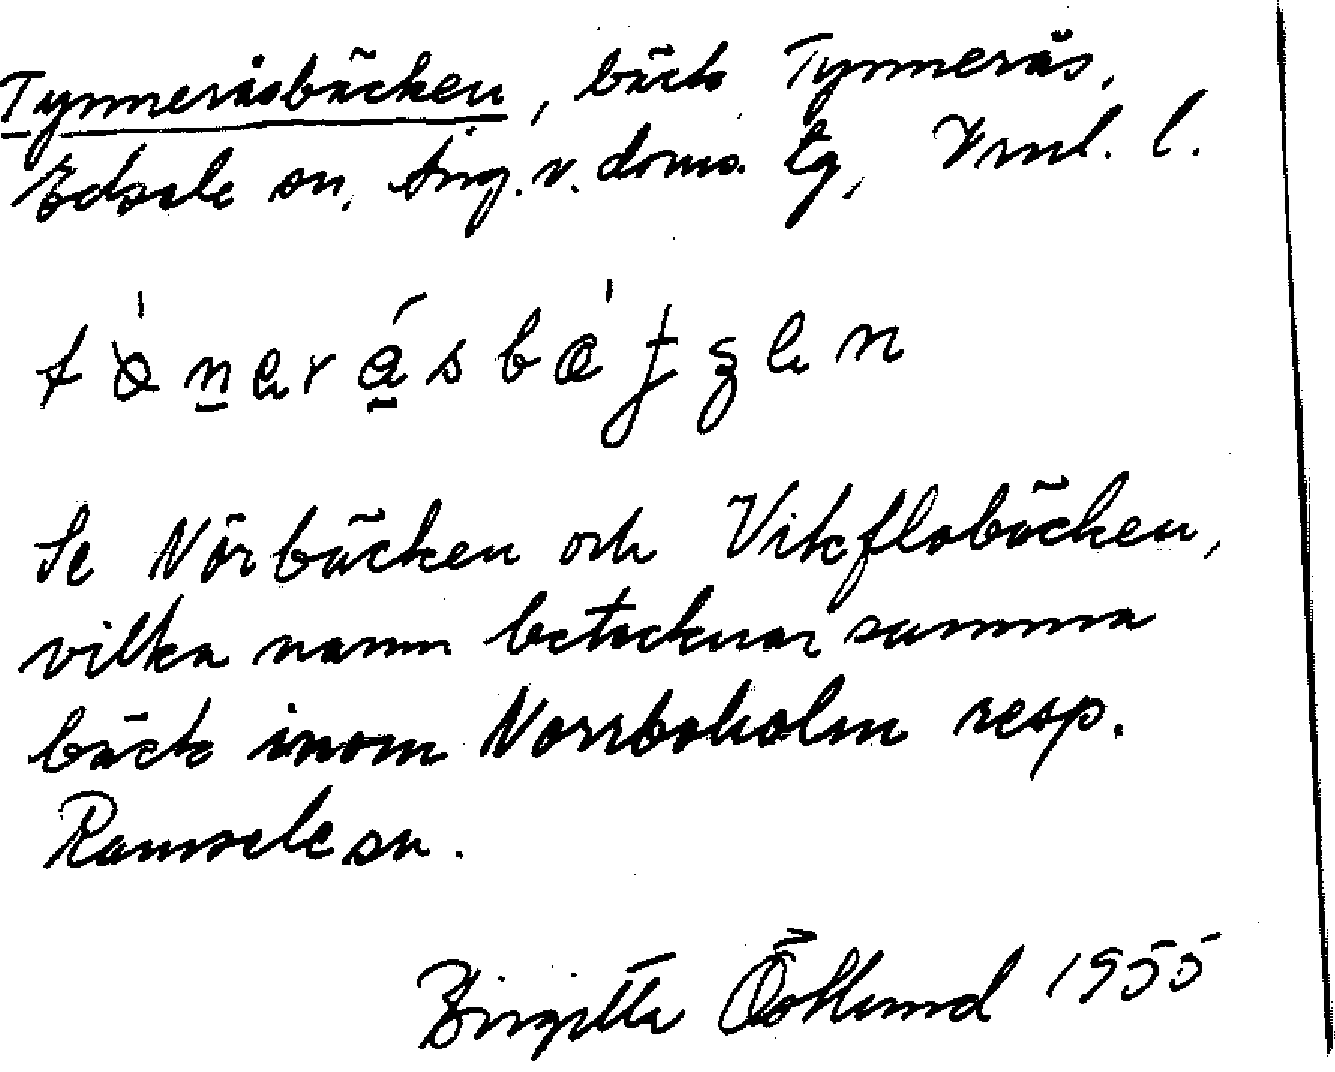 Tynneråsbäcken, bäck Tynnerås,
Edsele sn, Ång. v. doms. tg, Vml. l.
Se Nörbäcken och Vikflobäcken,
vilka namn betecknar samma
bäck inom Norrboholm resp.
Ramsele sn.
Birgitta Östlund 1955